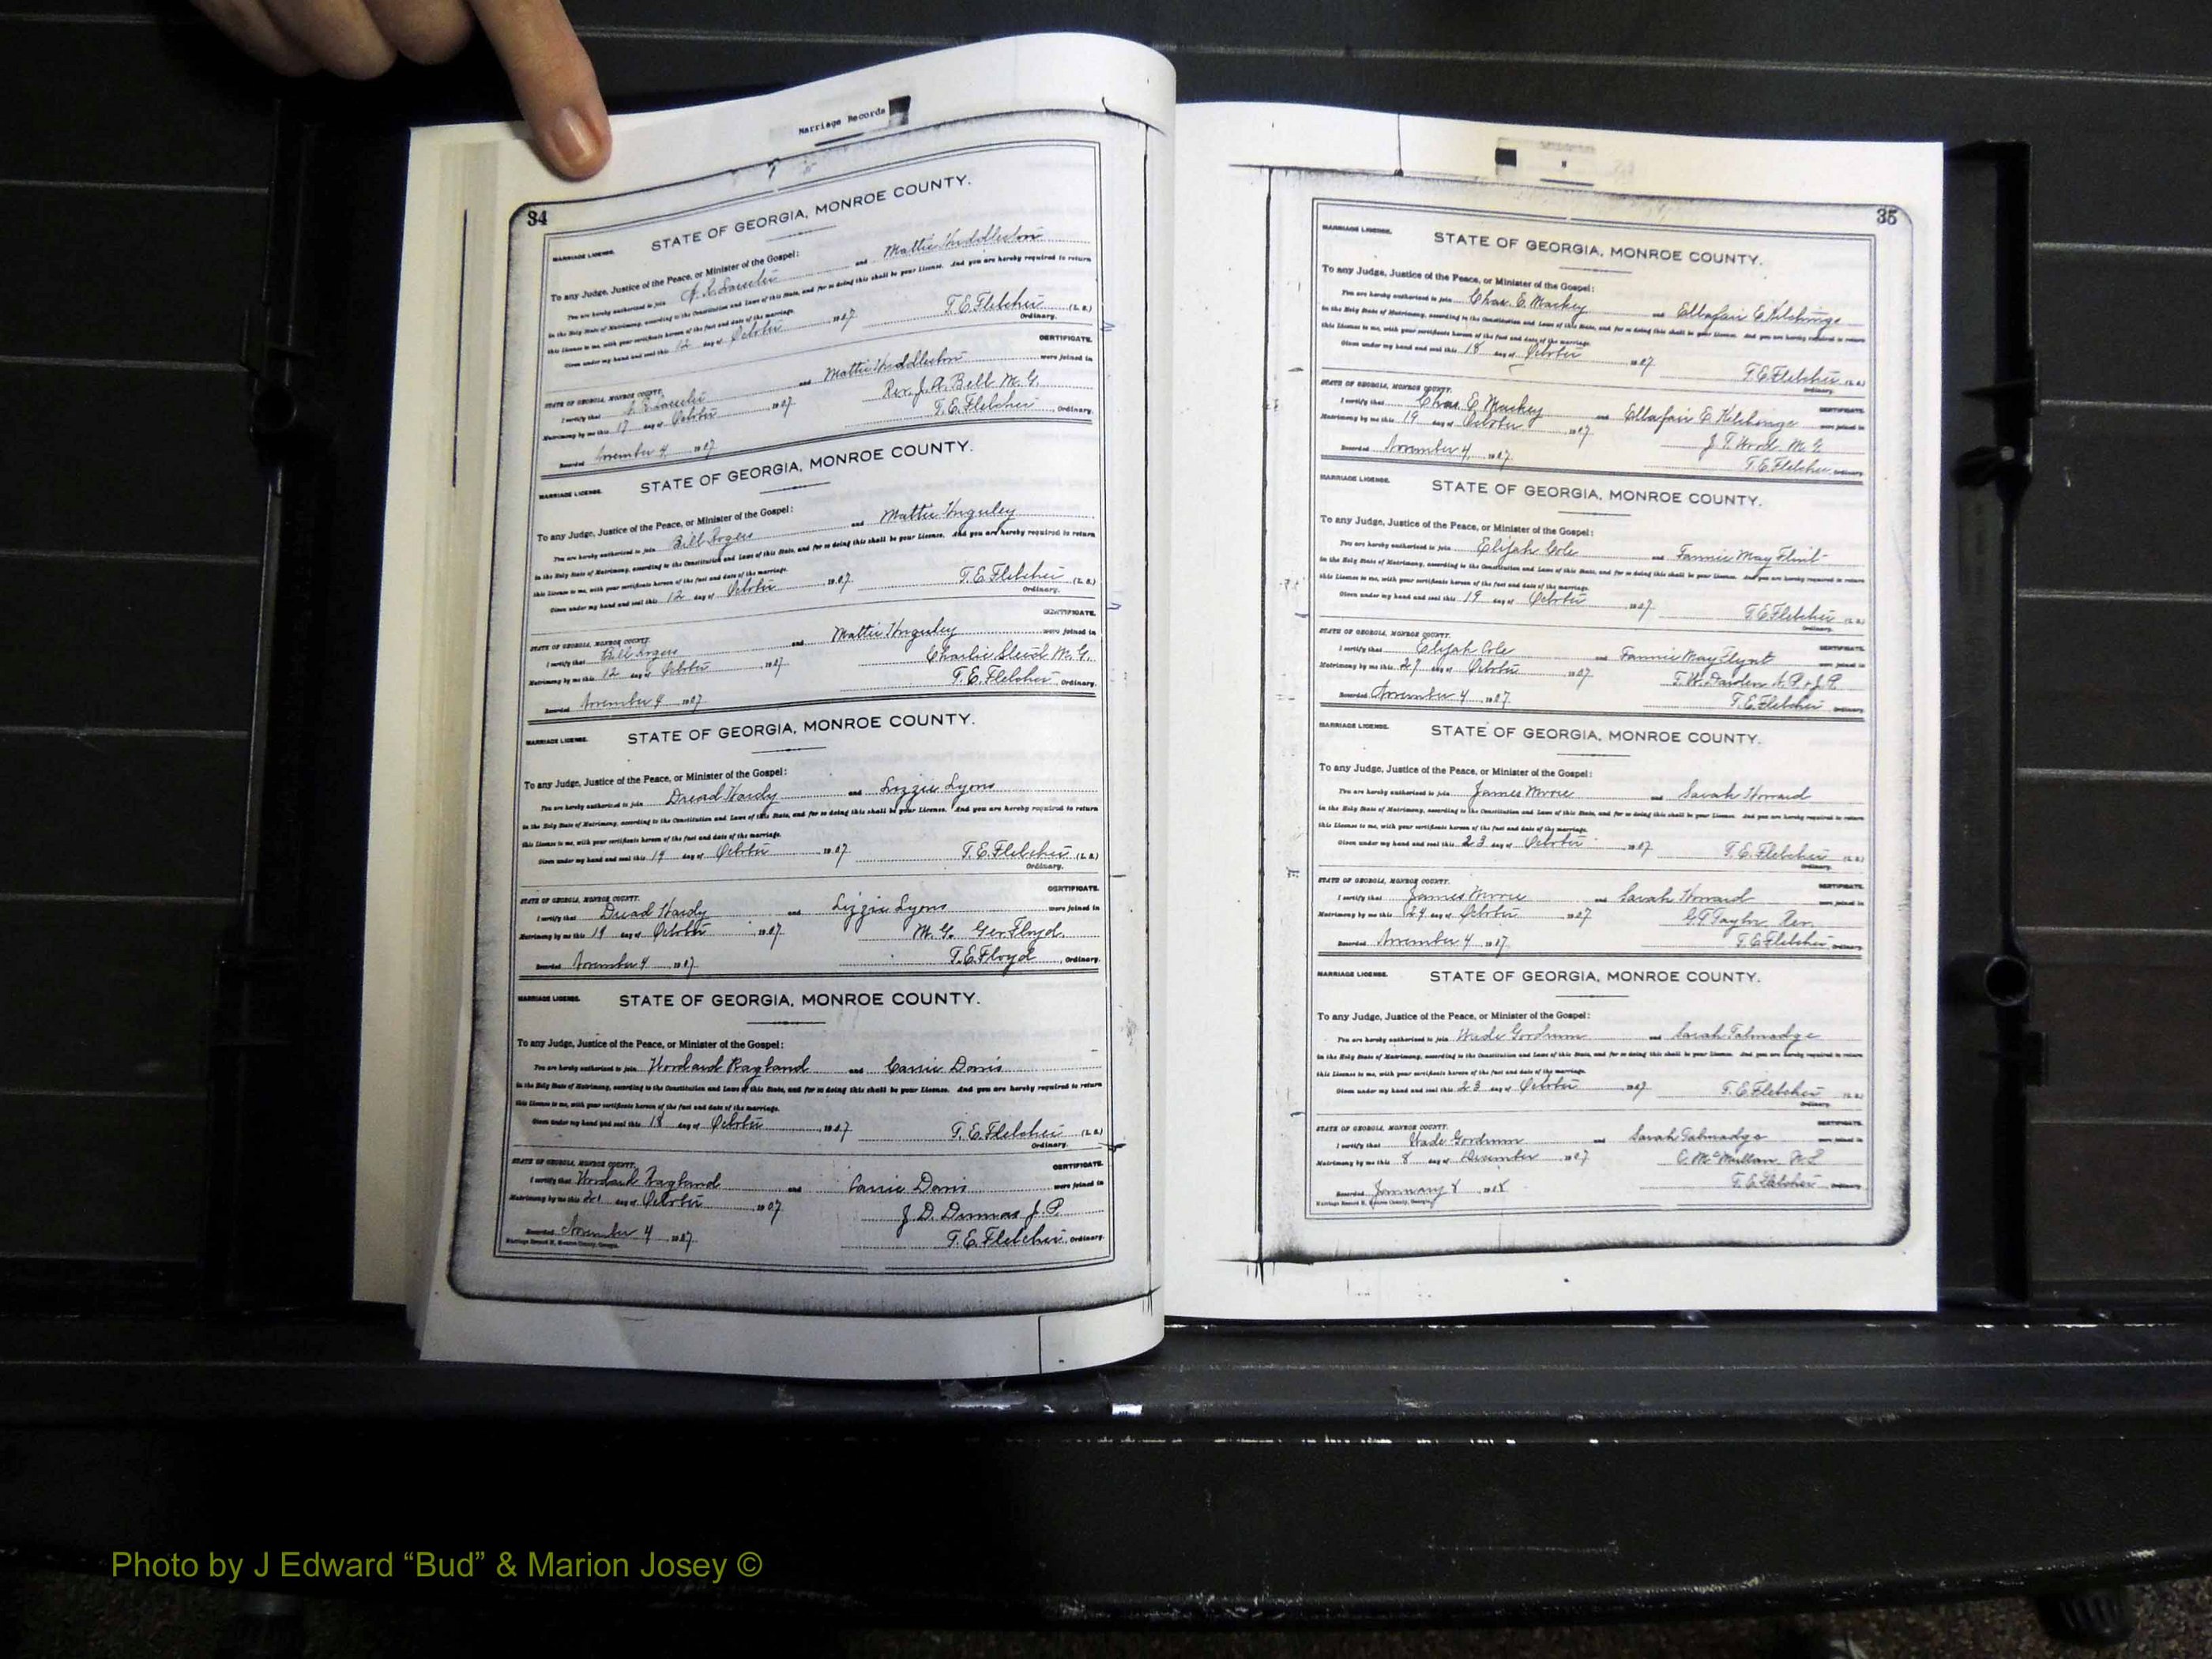 Marriage Records
34
STATE OF GEORGIA, MONROE COUNTY.
MARRIAGE LICENSE.
To any Judge, Justice of the Peace, or Minister of the Gospel:
You are hereby authorized to join and Mattie Huddleston
in the Holy State of Matrimony, according to the Constitution and Laws of this State, and for so doing this shall be your License. And you are hereby required to return
this License to me, with your certificate hereon of the fact and date of the marriage.
Given under my hand and seal this 12 day of October 1907
T. E. Fletcher (L. S.)
Ordinary.
STATE OF GEORGIA, MONROE COUNTY. CERTIFICATE.
I certify that and Mattie Huddleston were joined in
Matrimony by me this 17 day of October 1907 Rev. J. A. Bell M. G.
Recorded November 4 1907 T. E. Fletcher, Ordinary.
STATE OF GEORGIA, MONROE COUNTY.
MARRIAGE LICENSE.
To any Judge, Justice of the Peace, or Minister of the Gospel:
You are hereby authorized to join Bill and Mattie
in the Holy State of Matrimony, according to the Constitution and Laws of this State, and for so doing this shall be your License. And you are hereby required to return
this License to me, with your certificate hereon of the fact and date of the marriage.
Given under my hand and seal this 12 day of October 1907 T. E. Fletcher (L. S.)
Ordinary.
STATE OF GEORGIA, MONROE COUNTY. CERTIFICATE.
I certify that Bill and Mattie were joined in
Matrimony by me this 12 day of October 1907 Charlie M. G.
Recorded November 4 1907 T. E. Fletcher, Ordinary.
STATE OF GEORGIA, MONROE COUNTY.
MARRIAGE LICENSE.
To any Judge, Justice of the Peace, or Minister of the Gospel:
You are hereby authorized to join Dread Hardy and Lizzie Lyons
in the Holy State of Matrimony, according to the Constitution and Laws of this State, and for so doing this shall be your License. And you are hereby required to return
this License to me, with your certificate hereon of the fact and date of the marriage.
Given under my hand and seal this 19 day of October 1907 T. E. Fletcher (L. S.)
Ordinary.
STATE OF GEORGIA, MONROE COUNTY. CERTIFICATE.
I certify that Dread Hardy and Lizzie Lyons were joined in
Matrimony by me this 19 day of October 1907 M. G. Geo Floyd
Recorded November 4 1907 T. E. Floyd, Ordinary.
MARRIAGE LICENSE. STATE OF GEORGIA, MONROE COUNTY.
To any Judge, Justice of the Peace, or Minister of the Gospel:
You are hereby authorized to join Ragland and Carrie Davis
in the Holy State of Matrimony, according to the Constitution and Laws of this State, and for so doing this shall be your License. And you are hereby required to return
this License to me, with your certificate hereon of the fact and date of the marriage.
Given under my hand and seal this 18 day of October 1907 T. E. Fletcher (L. S.)
Ordinary.
STATE OF GEORGIA, MONROE COUNTY. CERTIFICATE.
I certify that Ragland and Carrie Davis were joined in
Matrimony by me this 21 day of October 1907 J. D. Dumas J. P.
Recorded November 4 1907 T. E. Fletcher, Ordinary.
Marriage Record H, Monroe County, Georgia.
35
MARRIAGE LICENSE. STATE OF GEORGIA, MONROE COUNTY.
To any Judge, Justice of the Peace, or Minister of the Gospel:
You are hereby authorized to join Chas. E. Mackey and Ellafair E
in the Holy State of Matrimony, according to the Constitution and Laws of this State, and for so doing this shall be your License. And you are hereby required to return
this License to me, with your certificate hereon of the fact and date of the marriage.
Given under my hand and seal this 18 day of October 1907
T. E. Fletcher (L. S.)
Ordinary.
STATE OF GEORGIA, MONROE COUNTY. CERTIFICATE.
I certify that Chas. E. Mackey and Ellafair E were joined in
Matrimony by me this 19 day of October 1907 J. T. Wood M. G.
Recorded November 4, 1907. T. E. Fletcher, Ordinary.
MARRIAGE LICENSE. STATE OF GEORGIA, MONROE COUNTY.
To any Judge, Justice of the Peace, or Minister of the Gospel:
You are hereby authorized to join Elijah Cole and Fannie May Flint
in the Holy State of Matrimony, according to the Constitution and Laws of this State, and for so doing this shall be your License. And you are hereby required to return
this License to me, with your certificate hereon of the fact and date of the marriage.
Given under my hand and seal this 19 day of October 1907. T. E. Fletcher (L. S.)
Ordinary.
STATE OF GEORGIA, MONROE COUNTY. CERTIFICATE.
I certify that Elijah Cole and Fannie May Flynt were joined in
Matrimony by me this 27 day of October 1907 T. W. Darden N. P. & J. P.
Recorded November 4 1907. T. E. Fletcher Ordinary.
MARRIAGE LICENSE. STATE OF GEORGIA, MONROE COUNTY.
To any Judge, Justice of the Peace, or Minister of the Gospel:
You are hereby authorized to join James Moore and Sarah Howard
in the Holy State of Matrimony, according to the Constitution and Laws of this State, and for so doing this shall be your License. And you are hereby required to return
this License to me, with your certificate hereon of the fact and date of the marriage.
Given under my hand and seal this 23 day of October 1907 T. E. Fletcher (L. S.)
Ordinary.
STATE OF GEORGIA, MONROE COUNTY. CERTIFICATE.
I certify that James Moore and Sarah Howard were joined in
Matrimony by me this 24 day of October 1907 G. T. Taylor Rev.
Recorded November 4 1907. T. E. Fletcher Ordinary.
MARRIAGE LICENSE. STATE OF GEORGIA, MONROE COUNTY.
To any Judge, Justice of the Peace, or Minister of the Gospel:
You are hereby authorized to join Wade Gordrum and Sarah Talmadge
in the Holy State of Matrimony, according to the Constitution and Laws of this State, and for so doing this shall be your License. And you are hereby required to return
this License to me, with your certificate hereon of the fact and date of the marriage.
Given under my hand and seal this 23 day of October 1907 T. E. Fletcher (L. S.)
Ordinary.
STATE OF GEORGIA, MONROE COUNTY. CERTIFICATE.
I certify that Wade Gordrum and Sarah Talmadge were joined in
Matrimony by me this 8 day of December 1907 C. McMullan
Recorded January 8 1908 T. E. Fletcher Ordinary.
Marriage Record H, Monroe County, Georgia.
Photo by J Edward “Bud” & Marion Josey ©